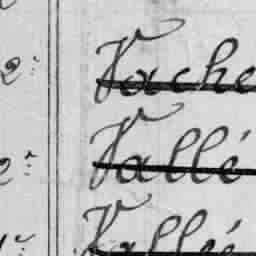 2e Vache
2e Vallé
Vallée